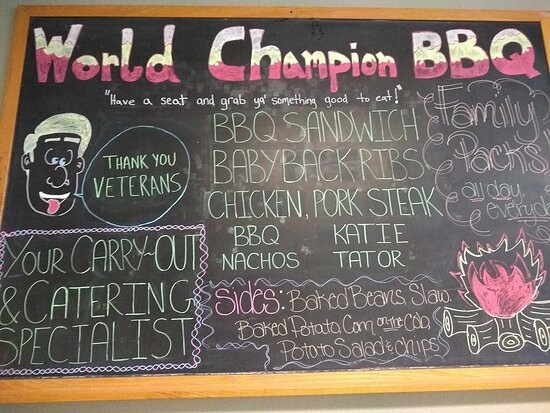 World Champion BBQ
"Have a seat and grab ya' something good to eat!"
THANK YOU
VETERANS
BBQ SANDWICH
BABY BACK RIBS
CHICKEN, PORK STEAK
BBQ NACHOS
KATIE TATOR
Family
Packs!
all day,
everyday
YOUR CARRY-OUT
& CATERING
SPECIALIST
Sides: Baked Beans, Slaw
Baked Potato, Corn on the Cob,
Potato Salad & chips